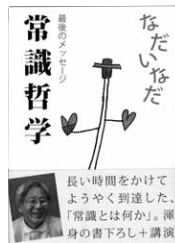 なだいなだ
最後のメッセージ
常識哲学
長い時間をかけて
ようやく到達した、
「常識とは何か」。渾
身の書下ろし＋講演